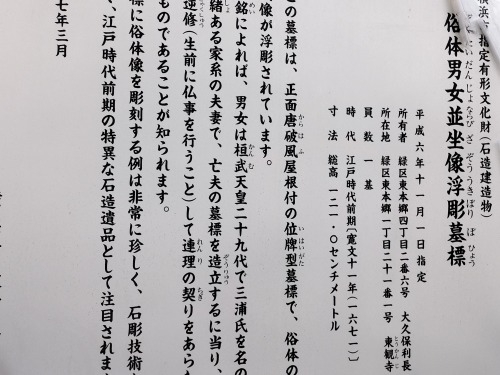 横浜市指定有形文化財(石造建造物)
俗体男女並坐像浮彫墓標
ぞくたいだんじょならびざぞううきぼりぼひょう
平成六年十一月一日指定
所有者 緑区東本郷四丁目二番六号 大久保利長
所在地 緑区東本郷一丁目二十一番一号 東観寺
とうかんじ
員数 一基
時代 江戸時代前期〔寛文十一年(一六七一)〕
寸法 総高一二一・〇センチメートル
の墓標は、正面唐破風屋根付の位牌型墓標で、俗体の
からはふ
いはいがた
像が浮彫されています。
銘によれば、男女は桓武天皇二十九代で三浦氏を名の
めい
かんむ
緒ある家系の夫妻で、亡夫の墓標を造立するに当り、
ぞうりゅう
逆修(生前に仏事を行うこと)して連理の契りをあらわ
ぎゃくしゅう
れんり
ちぎ
ものであることが知られます。
標に俗体像を彫刻する例は非常に珍しく、石彫技術
、江戸時代前期の特異な石造遺品として注目されま
七年三月